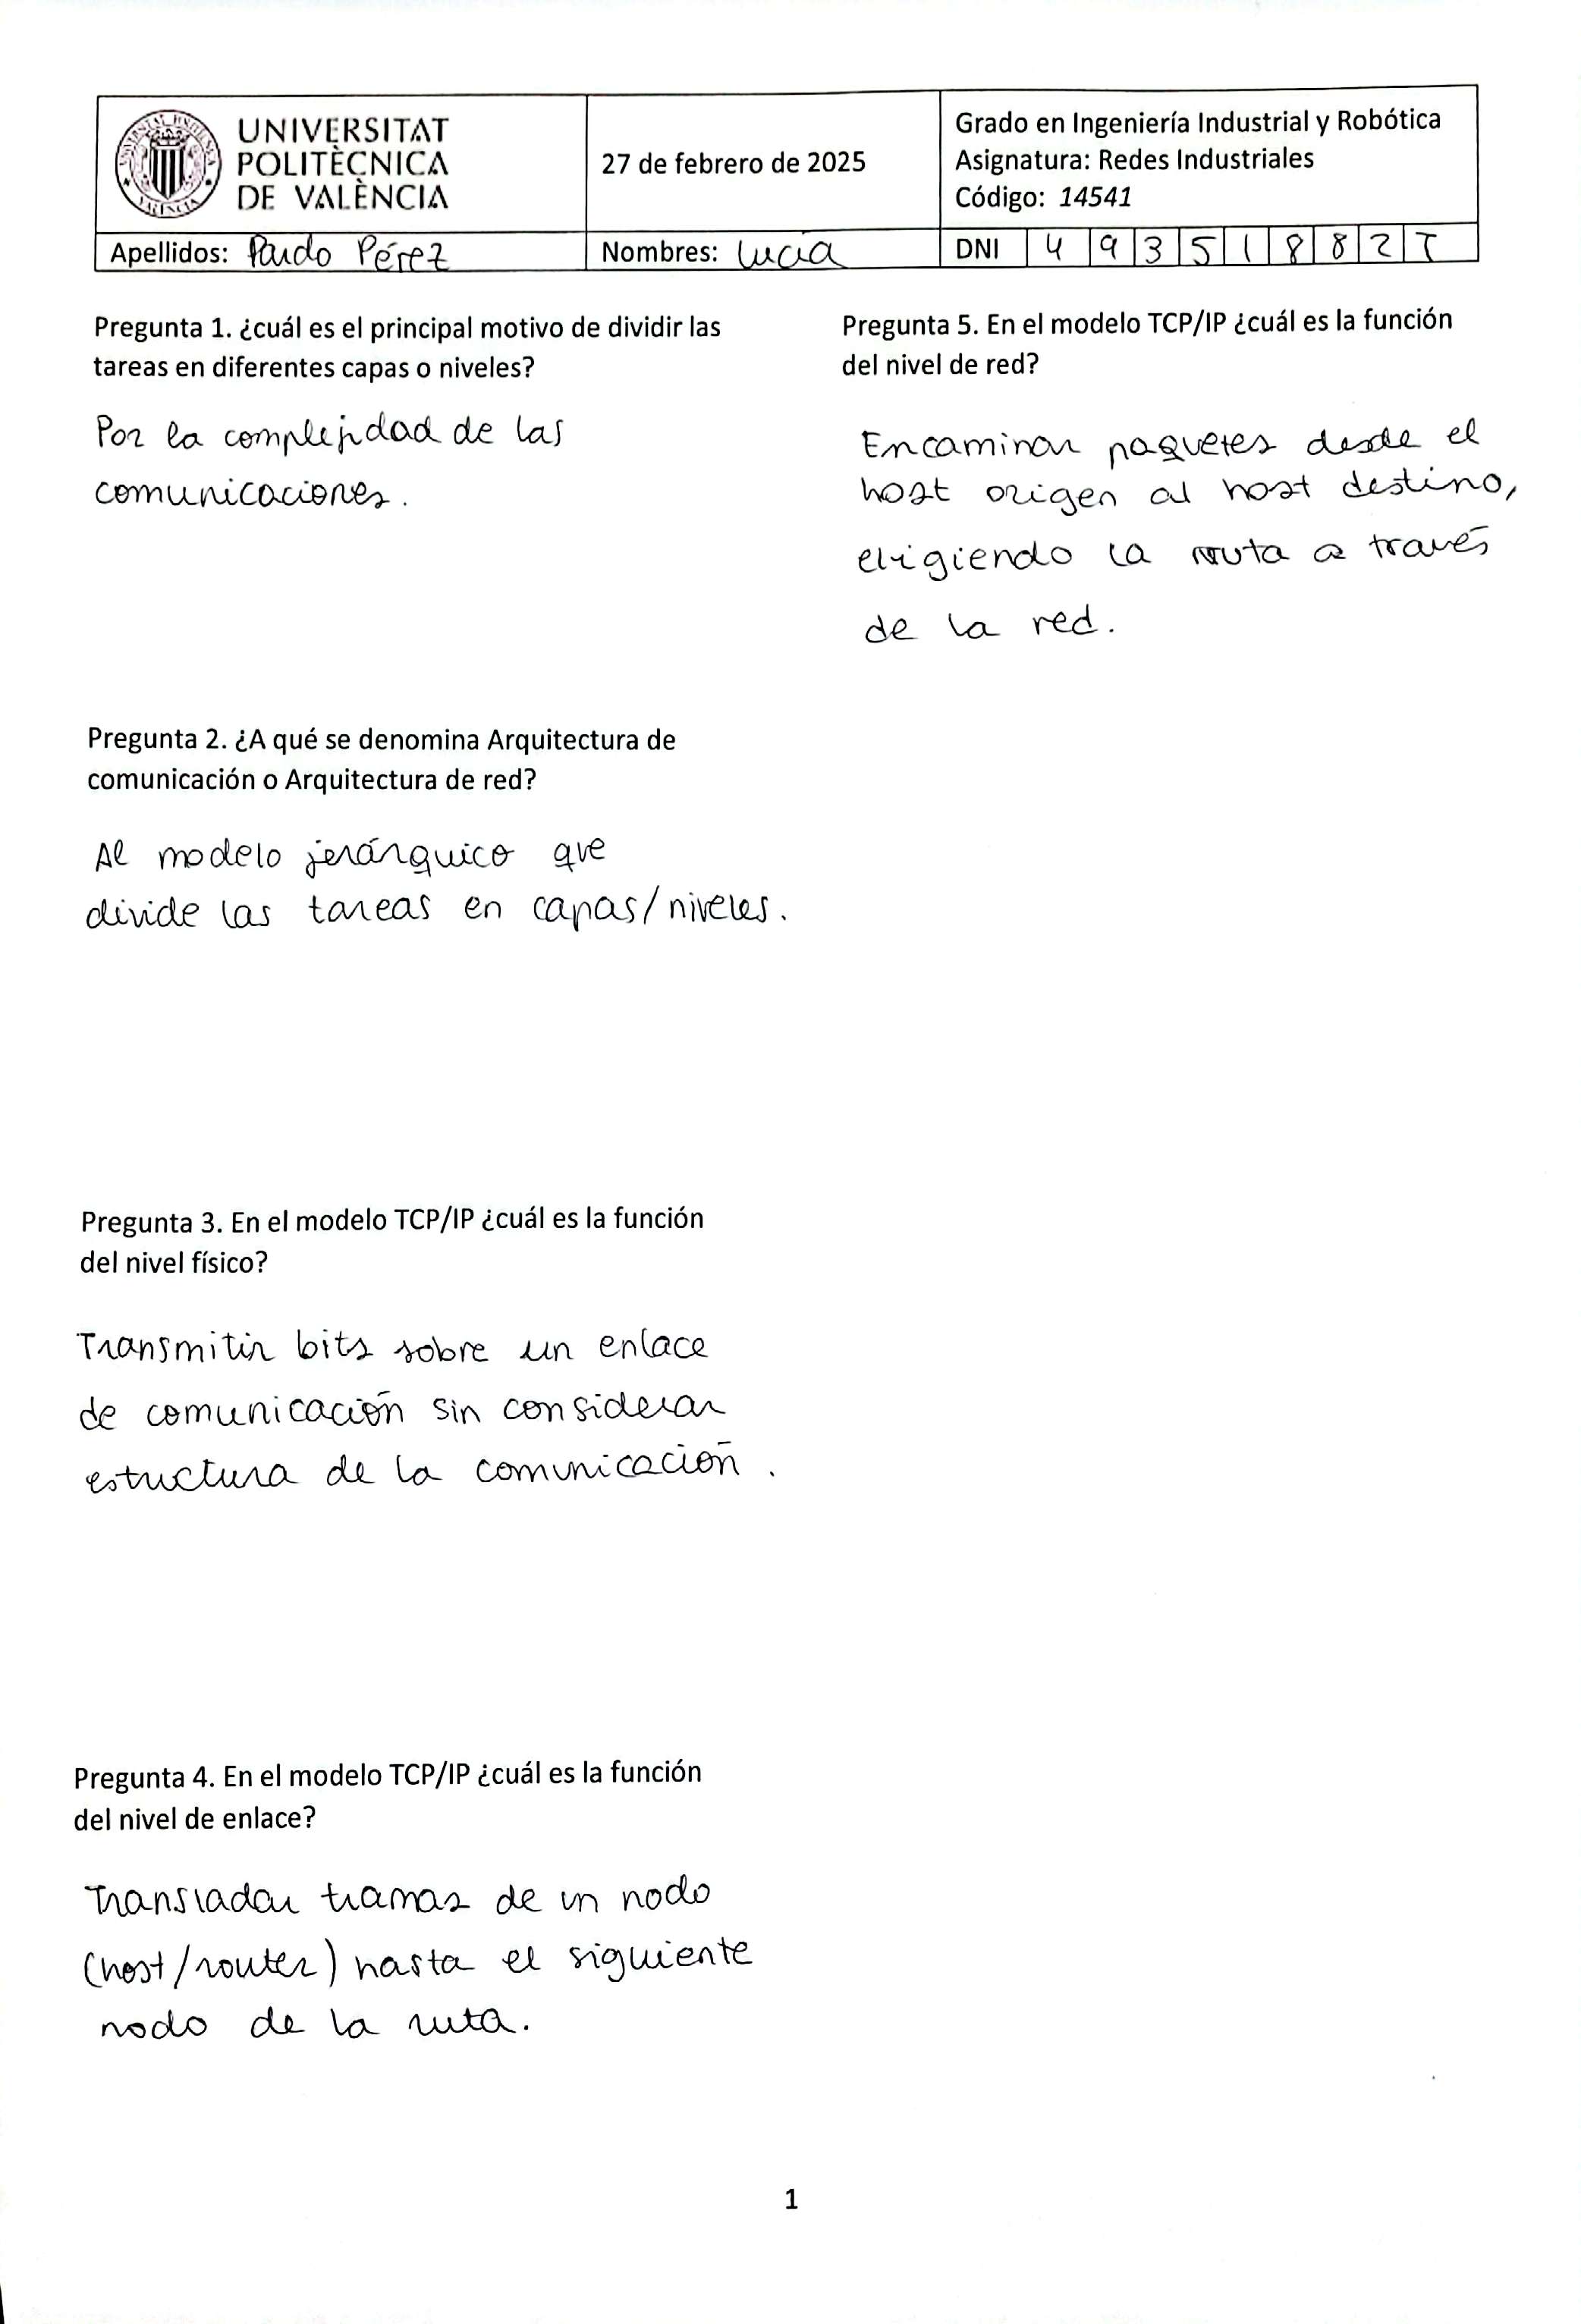 UNIVERSITAT
POLITÈCNICA
DE VALÈNCIA
27 de febrero de 2025
Grado en Ingeniería Industrial y Robótica
Asignatura: Redes Industriales
Código: 14541
Apellidos: Pardo Pérez
Nombres: Lucía
DNI 4 9 3 5 1 8 8 2 T
Pregunta 1. ¿cuál es el principal motivo de dividir las
tareas en diferentes capas o niveles?
Por la complejidad de las
comunicaciones.
Pregunta 2. ¿A qué se denomina Arquitectura de
comunicación o Arquitectura de red?
Al modelo jerárquico que
divide las tareas en capas/niveles.
Pregunta 3. En el modelo TCP/IP ¿cuál es la función
del nivel físico?
Transmitir bits sobre un enlace
de comunicación sin considerar
estructura de la comunicación.
Pregunta 4. En el modelo TCP/IP ¿cuál es la función
del nivel de enlace?
Transladar tramas de un nodo
(host/router) hasta el siguiente
nodo de la ruta.
Pregunta 5. En el modelo TCP/IP ¿cuál es la función
del nivel de red?
Encaminar paquetes desde el
host origen al host destino,
eligiendo la ruta a través
de la red.
1